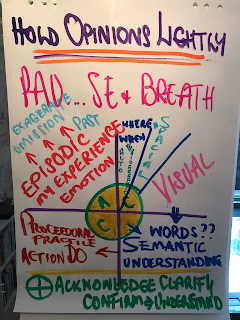 HOLD OPINIONS LIGHTLY
PAU...SE & BREATH
EXAGERATE
OMISSION
PAST
EPISODIC
MY EXPERIENCE
EMOTION
WHERE &
WHEN
SPACIAL
AUTO
VISUAL
A
C
C
PROCEDURAL
PRACTICE
ACTION DO
WORDS??
SEMANTIC
UNDERSTANDING
ACKNOWLEDGE CLARIFY
CONFIRM → UNDERSTAND